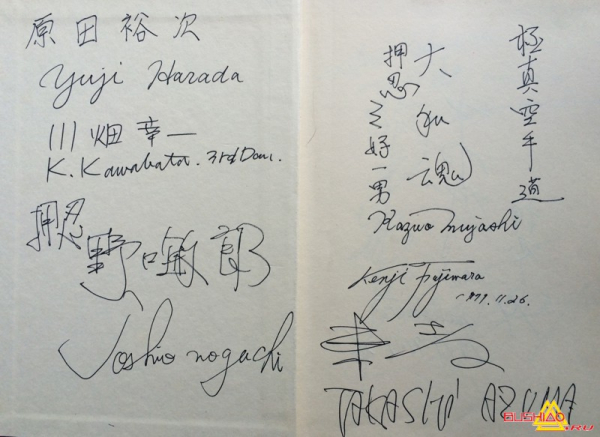 原田裕次
Yuji Harada
川畑幸一
K. Kawabata. 3rd Dan.
押忍
野口敏郎
Toshio noguchi
極真空手道
大和魂
押忍 三好一男
Kazuo Miyoshi
Kenji Fujiwara
1999.11.26.
東
TAKASHI AZUMA